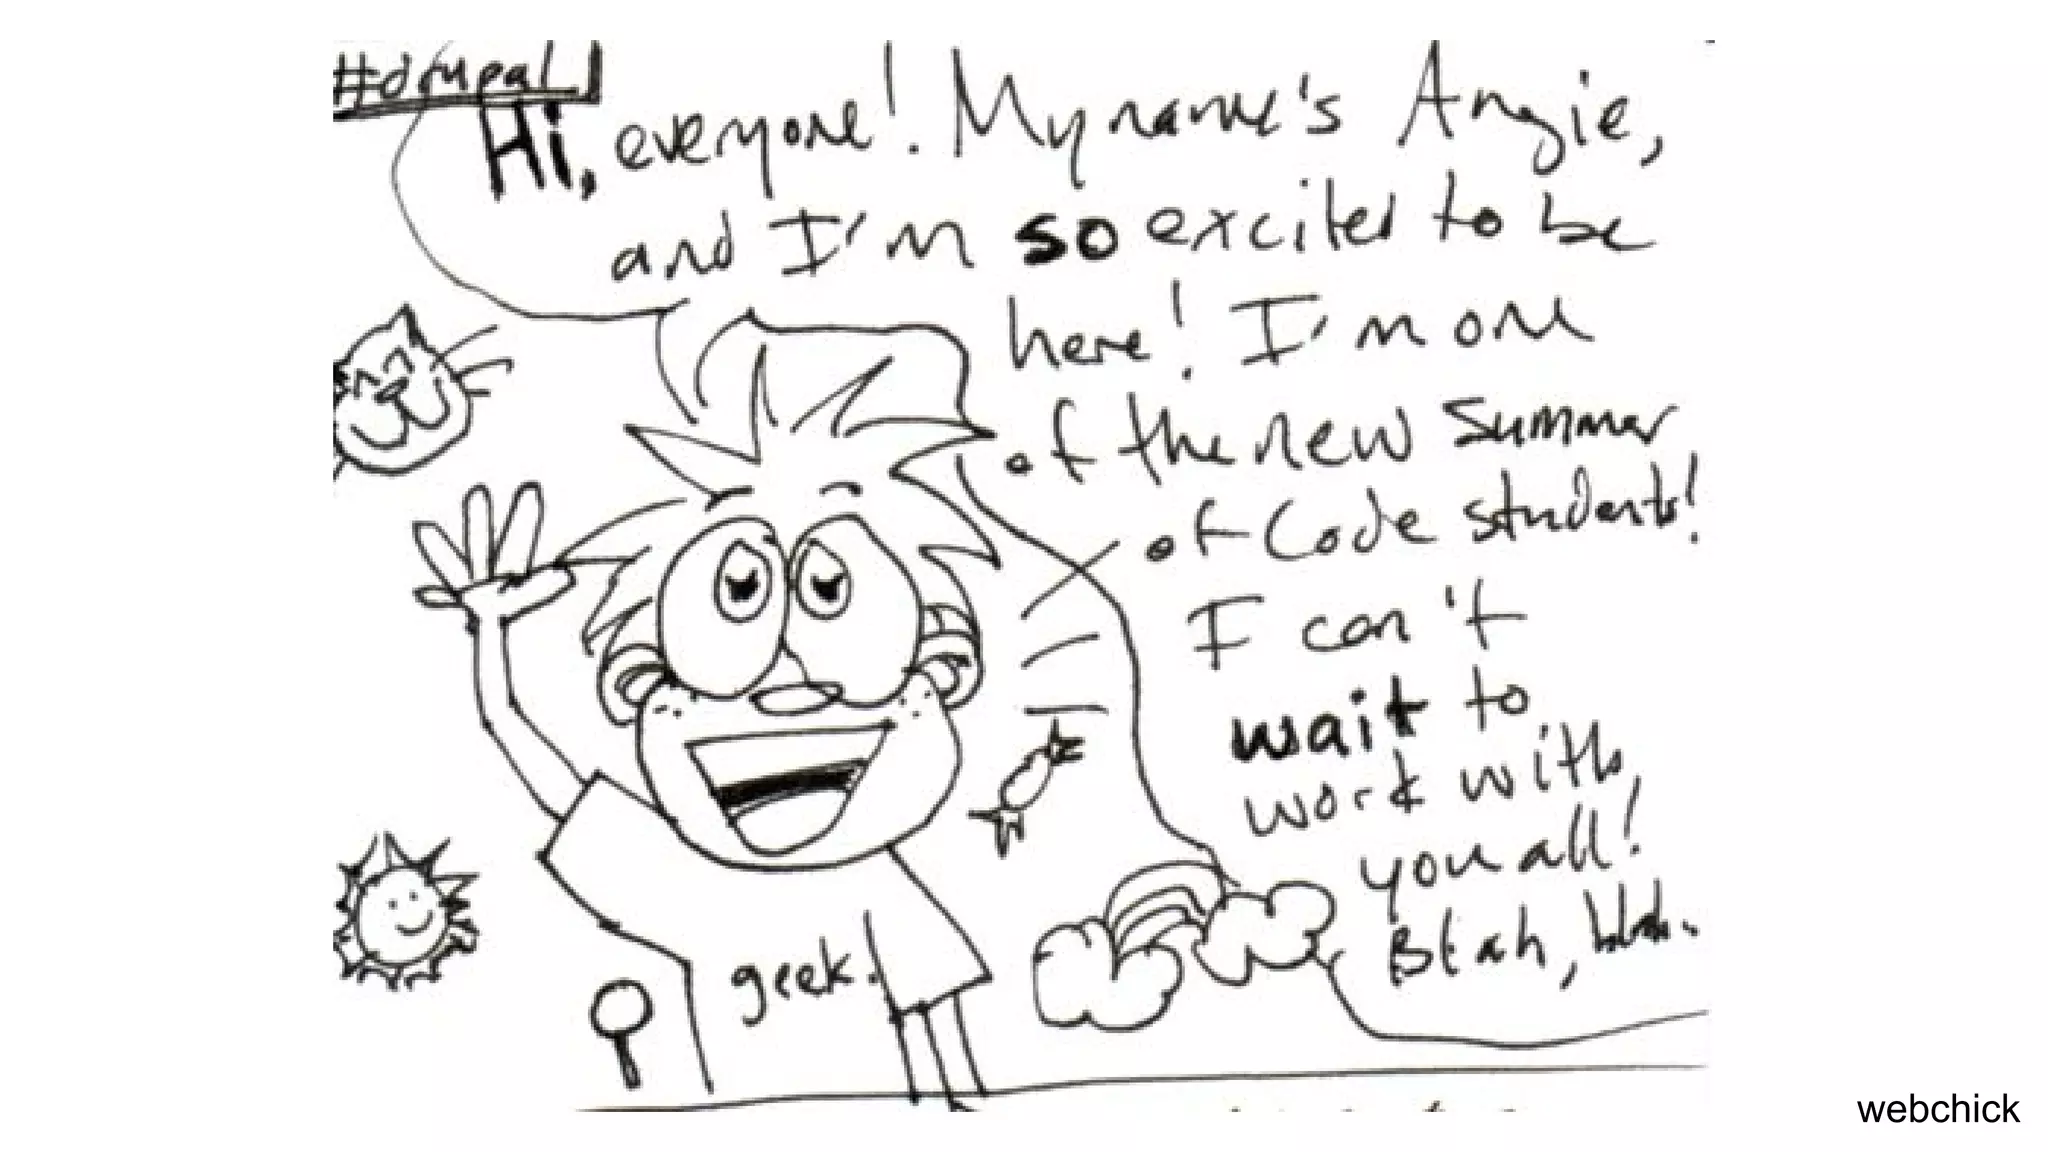 #drupal
Hi, everyone! My name's Angie,
and I'm so excited to be
here! I'm one
of the new Summer
of Code students!
I can't
wait to
work with
you all!
Blah, blah.
geek.
webchick